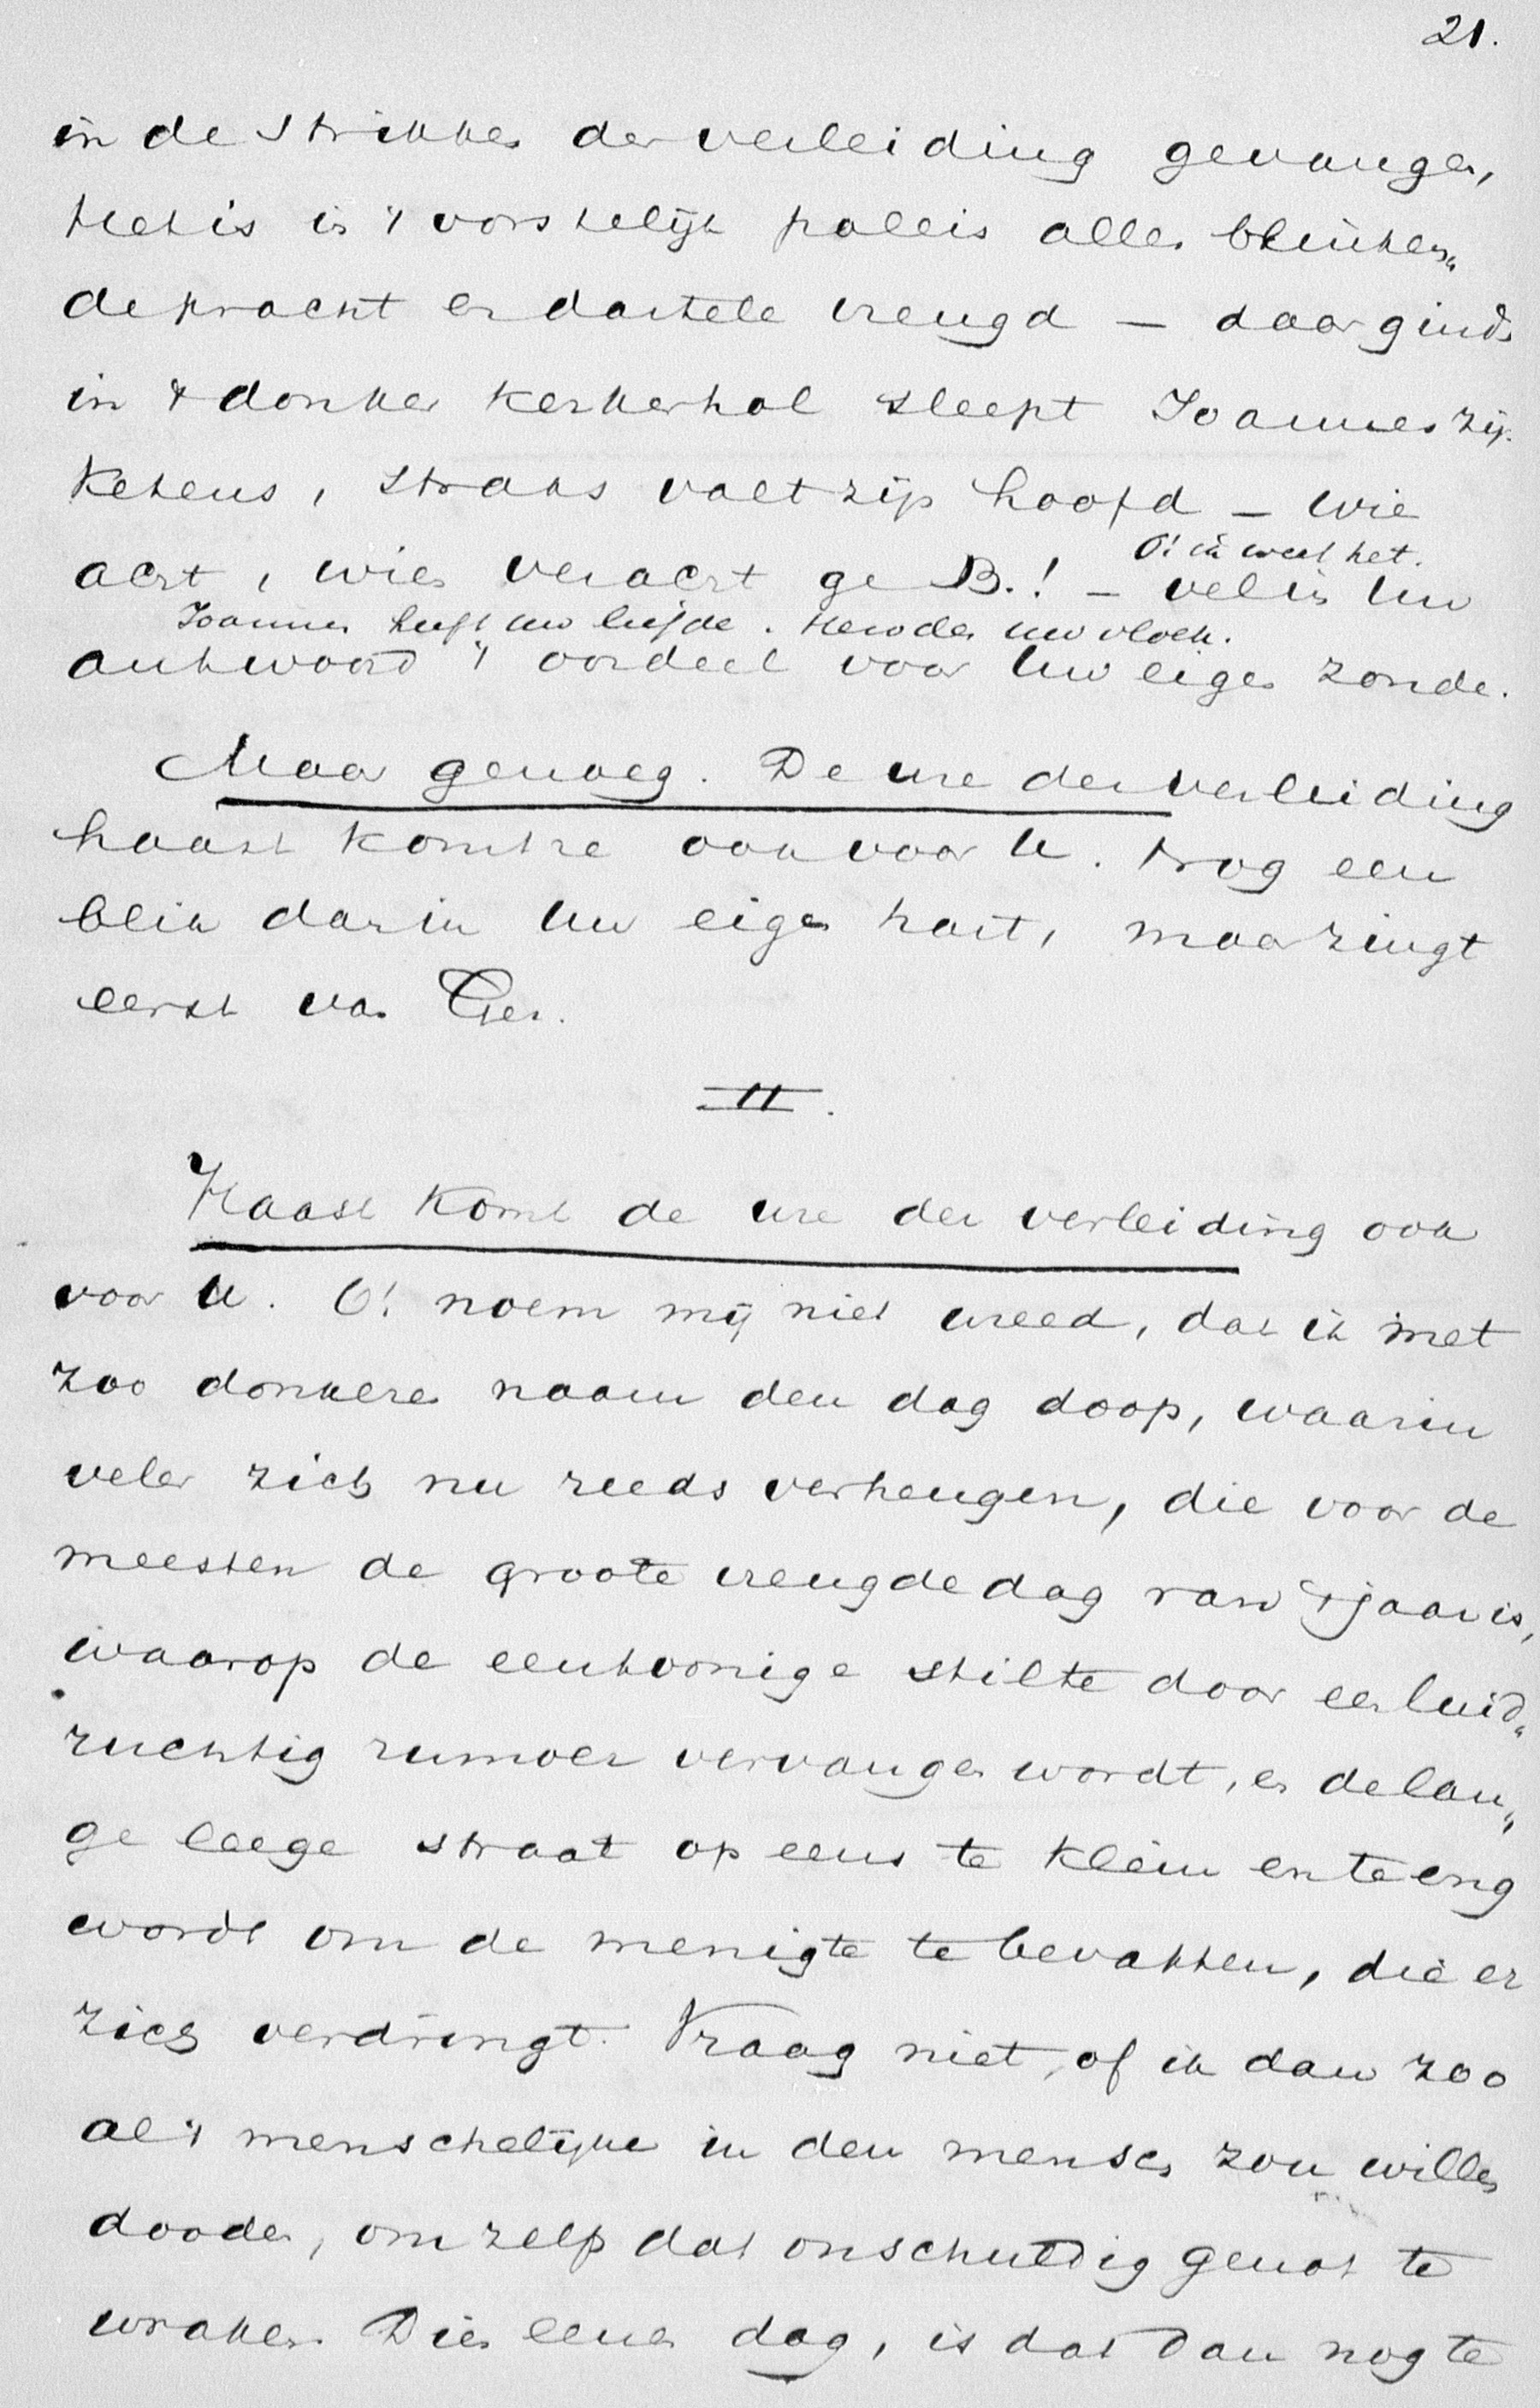 21.
in de strikken der verleiding gevangen,
Het is in 't vorstelijk paleis alles blinken„
de pracht en dartele vreugd — daar ginds
in 't donker kerkerhol sleept Joannes zijn
ketens, straks valt zijn hoofd — wie
O! ik weet het.
acht, wien veracht ge B.! — vel in Uw
Joannes heeft uw liefde. Herodes uw vloek.
antwoord 't oordeel voor Uw eigen zonde.
Maar genoeg. De ure der verleiding
haast komt ze ook voor U. Nog een
blik dan in Uw eigen hart, maar zingt
eerst van Gez.
II.
Haast komt de ure der verleiding ook
voor U. O! noem mij niet wreed, dat ik met
zoo donkeren naam den dag doop, waarin
velen zich nu reeds verheugen, die voor de
meesten de groote vreugdedag van 't jaar is,
waarop de eentoonige stilte door een luid„
ruchtig rumoer vervangen wordt, en de lan„
ge leege straat op eens te klein en te eng
wordt om de menigte te bevatten, die er
zich verdringt. Vraag niet, of ik dan zoo
al 't menschelijke in den mensch zou willen
dooden, om zelfs dat onschuldig genot te
wraken. Dien eenen dag, is dat dan nog te